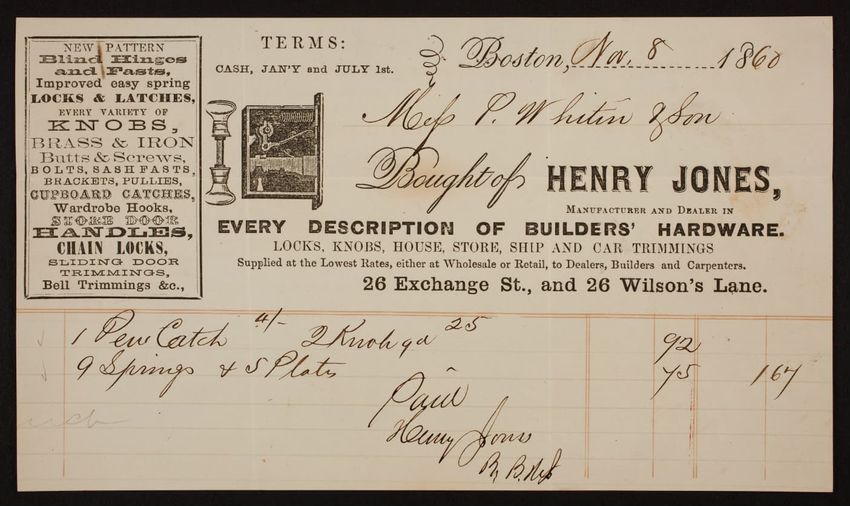 NEW PATTERN
Blind Hinges
and Fasts,
Improved easy spring
LOCKS & LATCHES,
EVERY VARIETY OF
KNOBS,
BRASS & IRON
Butts & Screws,
BOLTS, SASH FASTS,
BRACKETS, PULLIES,
CUPBOARD CATCHES,
Wardrobe Hooks,
STORE DOOR
HANDLES,
CHAIN LOCKS,
SLIDING DOOR
TRIMMINGS,
Bell Trimmings &c.,
TERMS:
CASH, JAN'Y and JULY 1st.
Boston, Nov. 8 1860
P. Whitin & Son
Bought of HENRY JONES,
MANUFACTURER AND DEALER IN
EVERY DESCRIPTION OF BUILDERS' HARDWARE.
LOCKS, KNOBS, HOUSE, STORE, SHIP AND CAR TRIMMINGS
Supplied at the Lowest Rates, either at Wholesale or Retail, to Dealers, Builders and Carpenters.
26 Exchange St., and 26 Wilson's Lane.
1 Pew Catch 4/- 2 Knobs 25 92
9 Springs & 5 Plates 75 167
Paid
Henry Jones